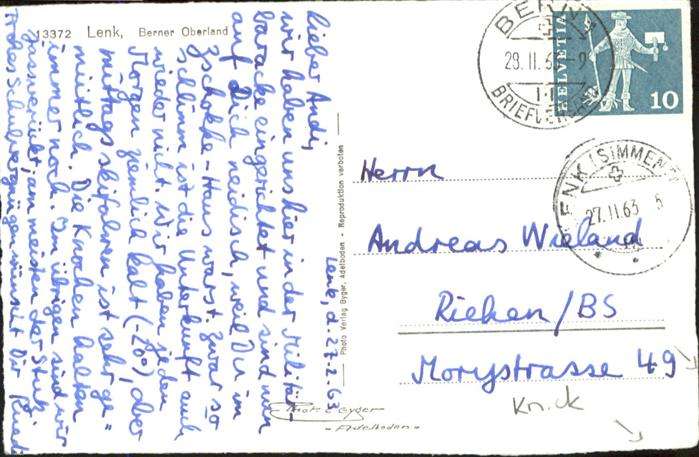 13372 Lenk, Berner Oberland
Lenk, d. 27.2.63
Lieber Andi,
wir haben uns hier in der Militär-
baracke eingerichtet und sind nun
auf Dich neidisch, weil Du im
Zschokke-Haus warst. Zwar so
schlimm ist die Unterkunft auch
wieder nicht. Wir haben jeden
Morgen ziemlich kalt (-20°), aber
mittags skifahren ist sehr ge-
mütlich. Die Knochen halten
immer noch. Im übrigen sind wir
jassverrückt, am meisten der Stutz
Frohes Schulvergnügen wünscht Dir Ruedi
Photo Verlag Gyger, Adelboden - Reproduktion verboten
Photo Gyger
- Adelboden -
HELVETIA
10
BERN
29. II. 63 - 9
BRIEFVERSAND
LENK (SIMMENTAL)
27. II 63 5
Herrn
Andreas Wieland
Riehen/BS
Morystrasse 49